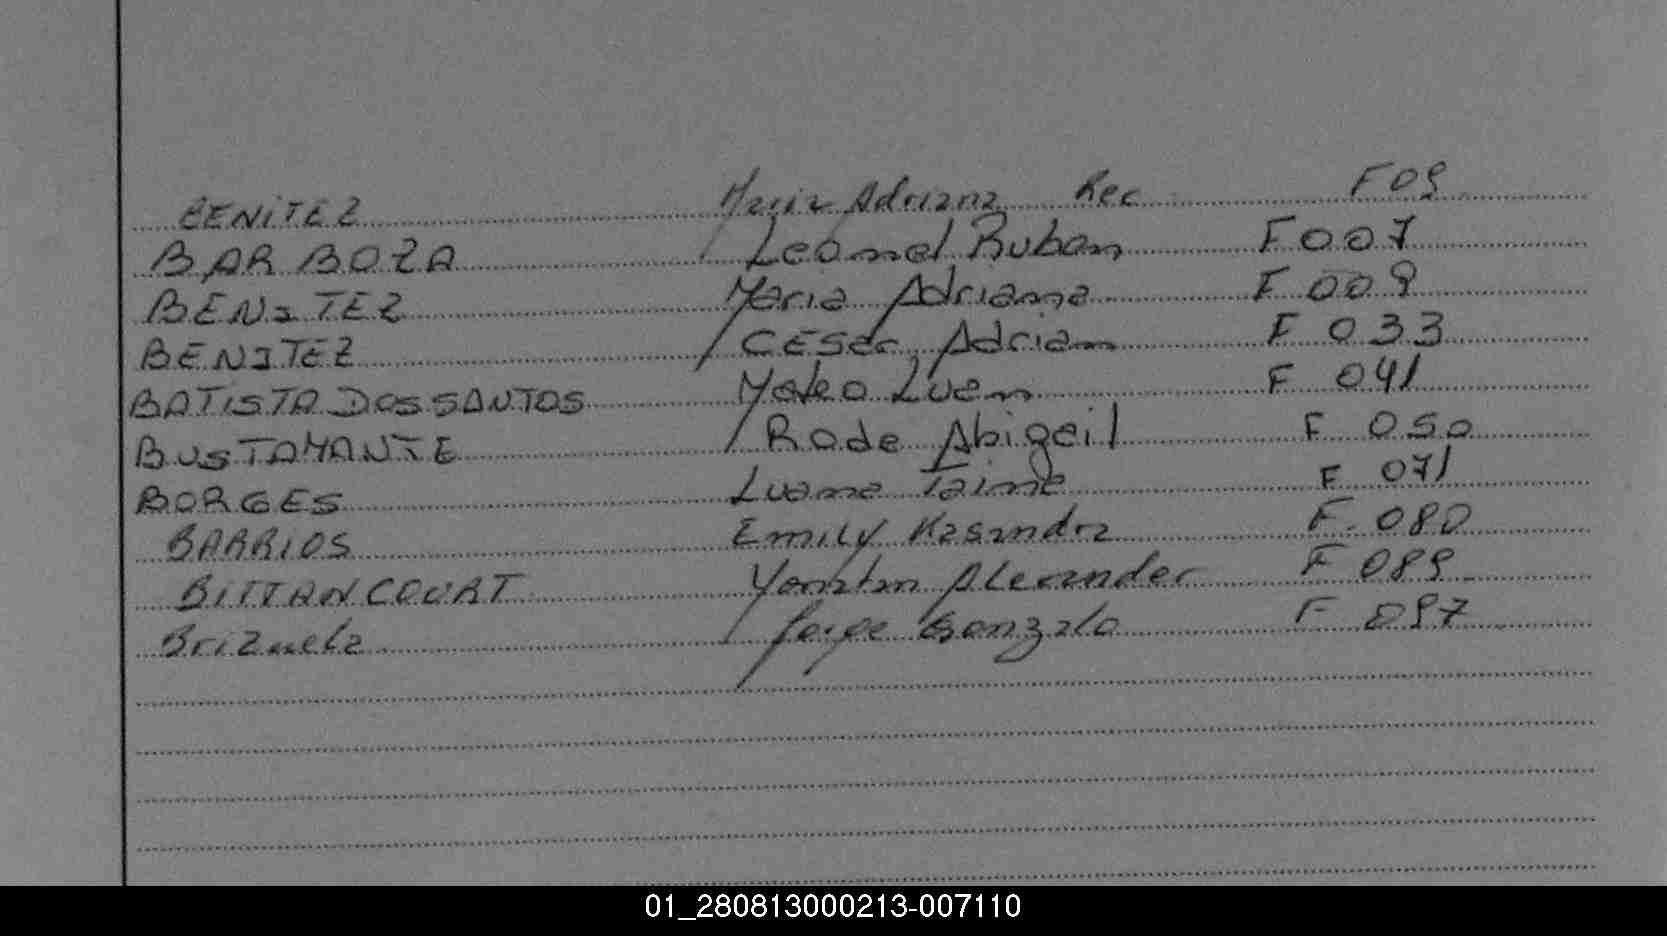 BENITEZ Maria Adriana Rec F09
BARBOZA Leonel Ruban F007
BENITEZ Maria Adriana F 009
BENITEZ CESAR Adrian F 033
BATISTA DOS SANTOS Mateo Luan F 041
BUSTAMANTE Rode Abigail F 050
BORGES Luana Taine F 071
BARRIOS EMILY Kasandra F. 080
BITTANCOURT Yonatan Alexander F 089
Brizuela Jorge Gonzalo F 097
01_280813000213-007110